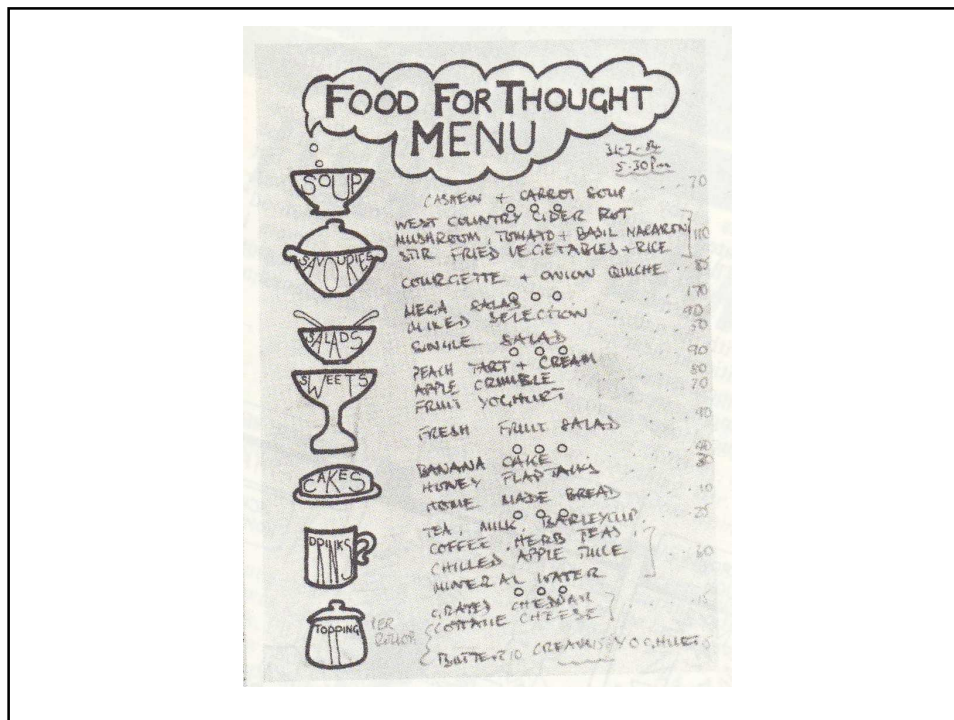 FOOD FOR THOUGHT
MENU
5.30pm
SOUP
CASHEW + CARROT SOUP . . . 70
SAVOURIES
WEST COUNTRY CIDER POT
MUSHROOM, TOMATO + BASIL MACARONI 110
STIR FRIED VEGETABLES + RICE
COURGETTE + ONION QUICHE . . 85
SALADS
MEGA SALAD . . . 170
MIXED SELECTION . . . 90
SINGLE SALAD . . . 50
SWEETS
PEACH TART + CREAM . . . 90
APPLE CRUMBLE . . . 80
FRUIT YOGHURT . . . 70
FRESH FRUIT SALAD . . . 90
CAKES
BANANA CAKE
HONEY FLAPJACKS
HOME MADE BREAD . . . 10
DRINKS
TEA, MILK, BARLEYCUP . . . 25
COFFEE, HERB TEAS,
CHILLED APPLE JUICE . . 30
MINERAL WATER
TOPPING
GRATED CHEDDAR . . . 15
COTTAGE CHEESE
BUTTER 10 CREAM 15 YOGHURT